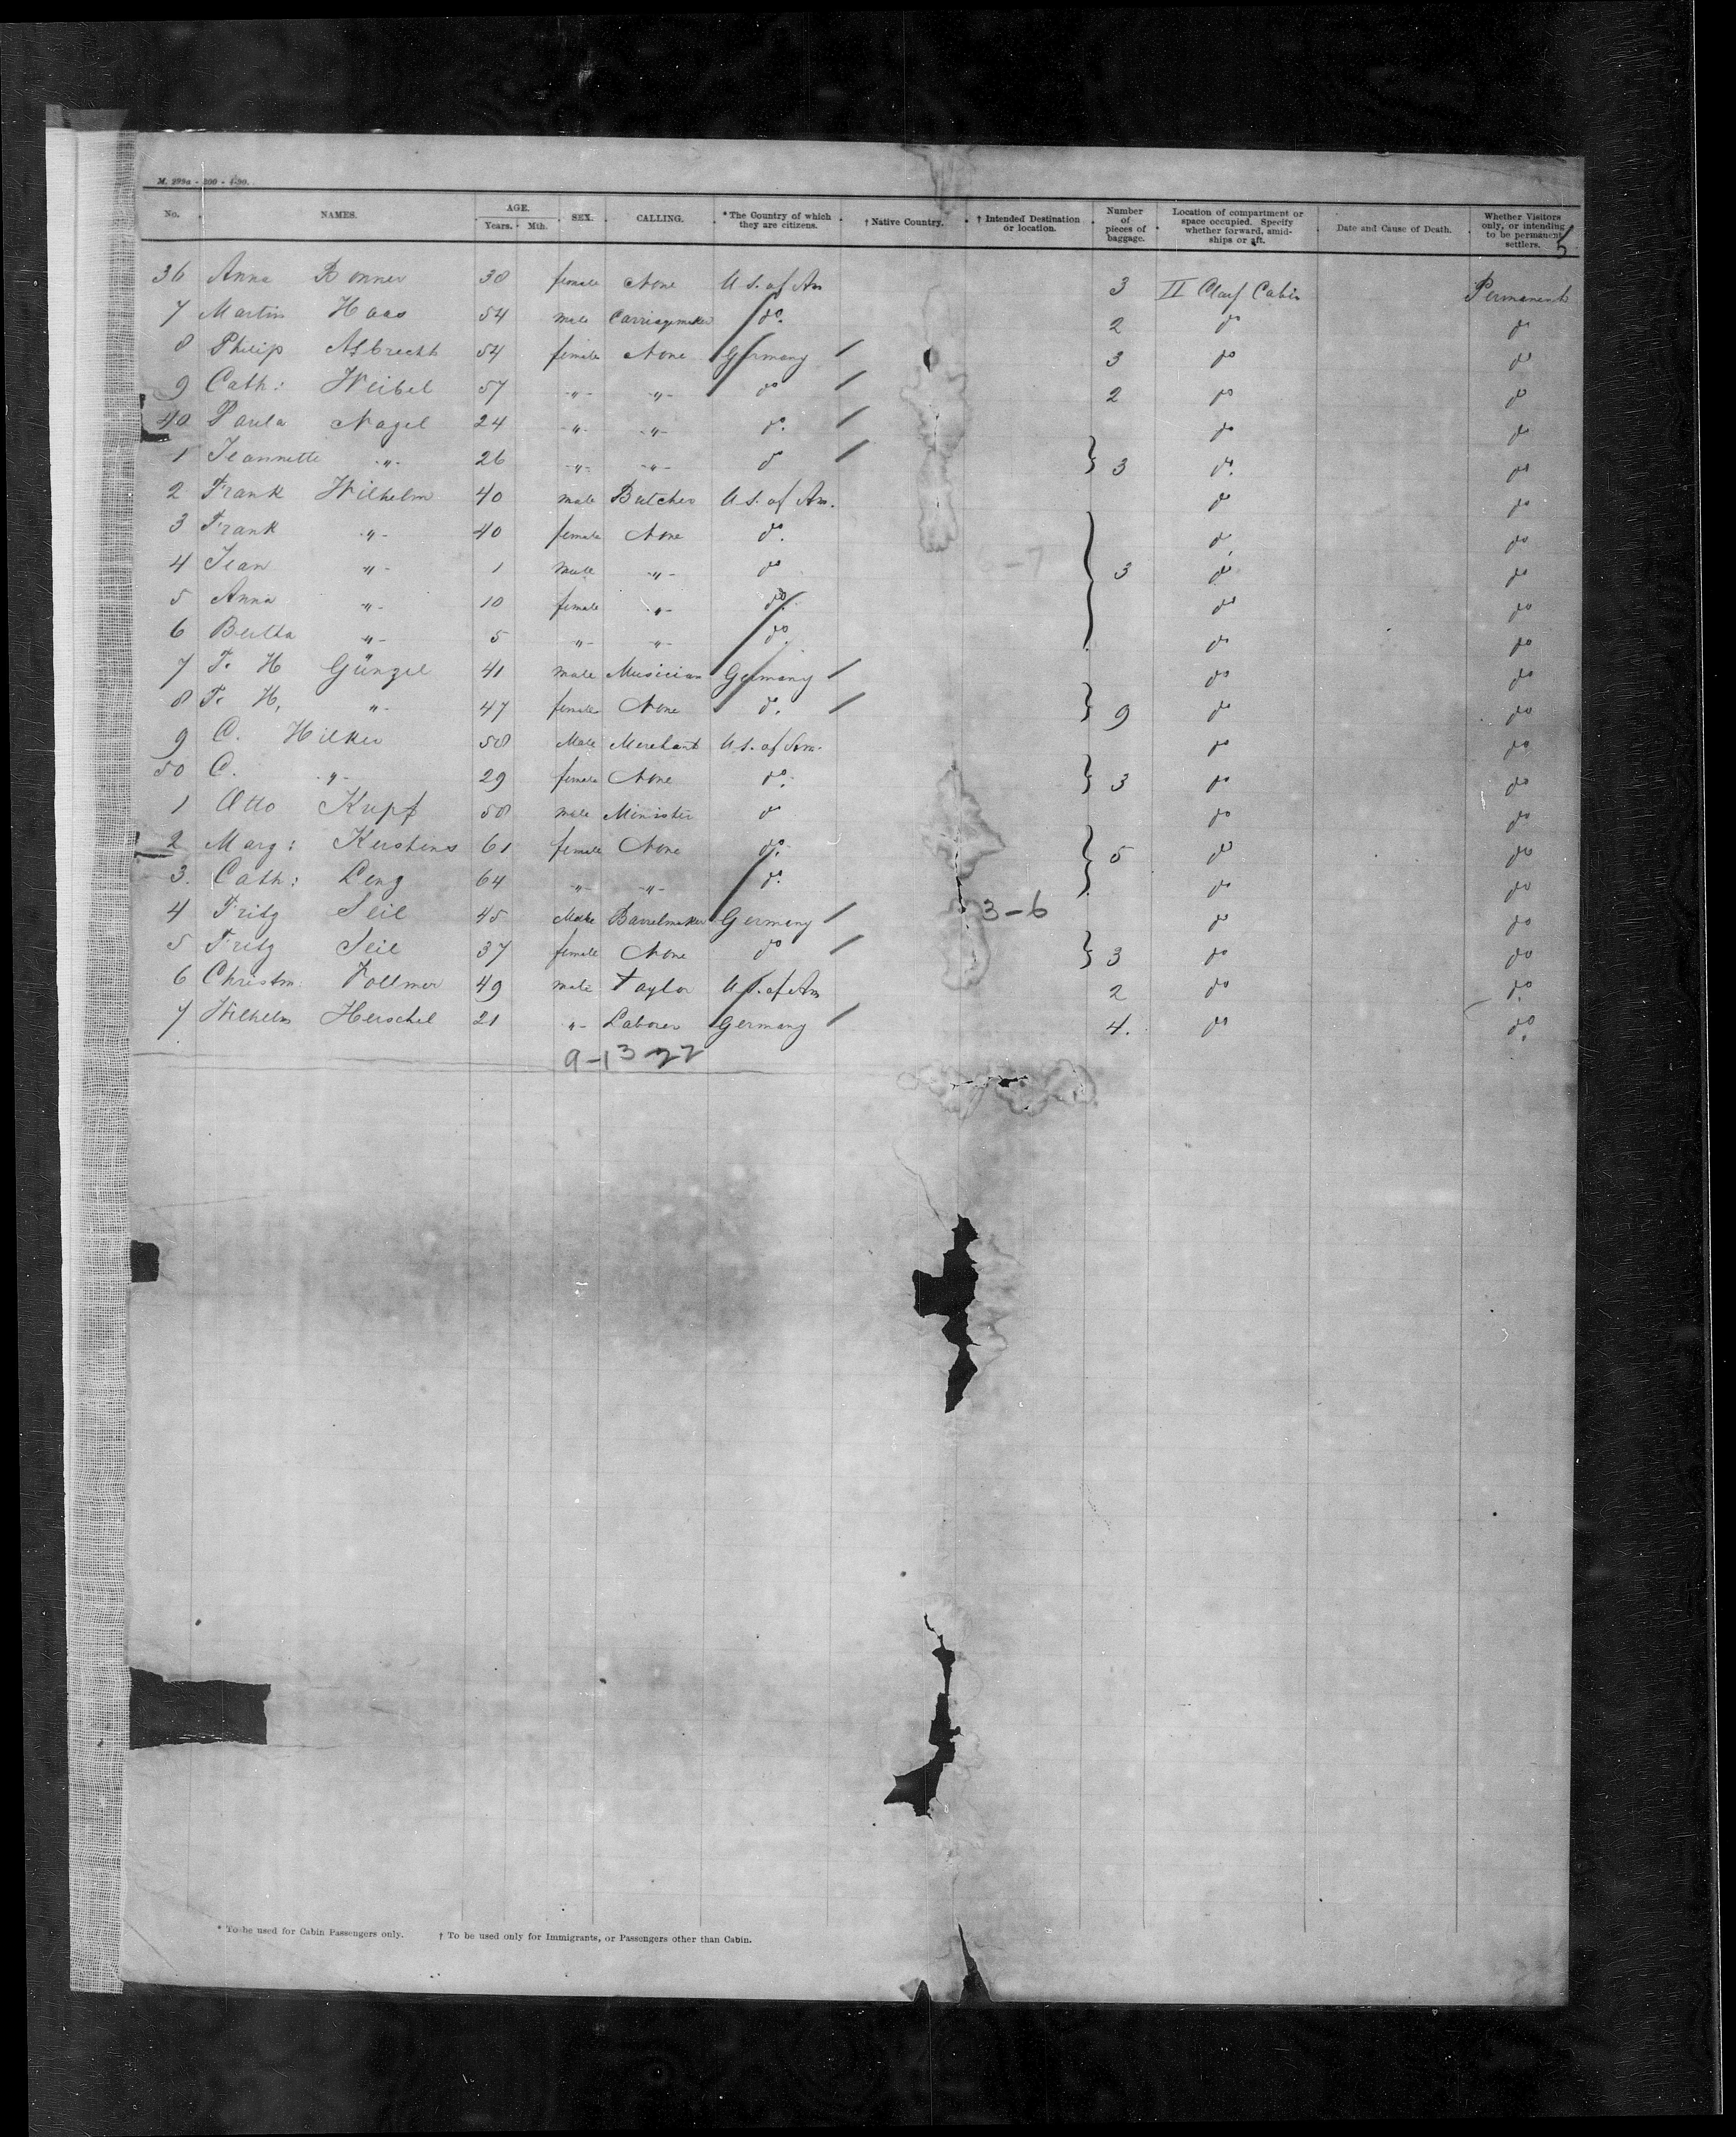 M. 299a - 200 - 4-90.
No. NAMES. AGE. Years. Mth. SEX. CALLING. * The Country of which they are citizens. † Native Country. † Intended Destination or location. Number of pieces of baggage. Location of compartment or space occupied. Specify whether forward, amidships or aft. Date and Cause of Death. Whether Visitors only, or intending to be permanent settlers.
5
36 Anna Bonner 38 female None U.S. of Am 3 II Class Cabin Permanent
7 Martin Haas 54 male Carriagemaker do. 2 do do
8 Philip Albrecht 54 female None Germany / 3 do do
9 Cath: Weibel 57 -"- -"- do / 2 do do
40 Paula Nagel 24 -"- -"- do. / do do
1 Jeannette -"- 26 -"- -"- do / } 3 do. do
2 Frank Wilhelm 40 male Butcher U.S. of Am. do do
3 Frank -"- 40 female None do. do do
4 Jean -"- 1 male -"- do } 3 do do
5 Anna -"- 10 female -"- do. do do
6 Bertha -"- 5 -"- -"- do. do do
7 F. H Günzel 41 male Musician Germany / do do
8 F. H. -"- 47 female None do. / } 9 do do
9 C. Hilker 58 Male Merchant U.S. of Am. do do
50 C. -"- 29 female None do. } 3 do do
1 Otto Kupf 58 male Minister do do do
2 Marg: Kerstens 61 female None do. } 5 do do
3. Cath: Leng 64 -"- -"- do. do do
4 Fritz Seil 45 Male Barrelmaker Germany / 3-6 do do
5 Fritz Seil 37 female None do / } 3 do do
6 Christm. Vollmer 49 male Taylor U.S. of Am 2 do do.
7 Wilhelm Herschel 21 "- Laborer Germany / 4. do do.
9-13-22
* To be used for Cabin Passengers only. † To be used only for Immigrants, or Passengers other than Cabin.